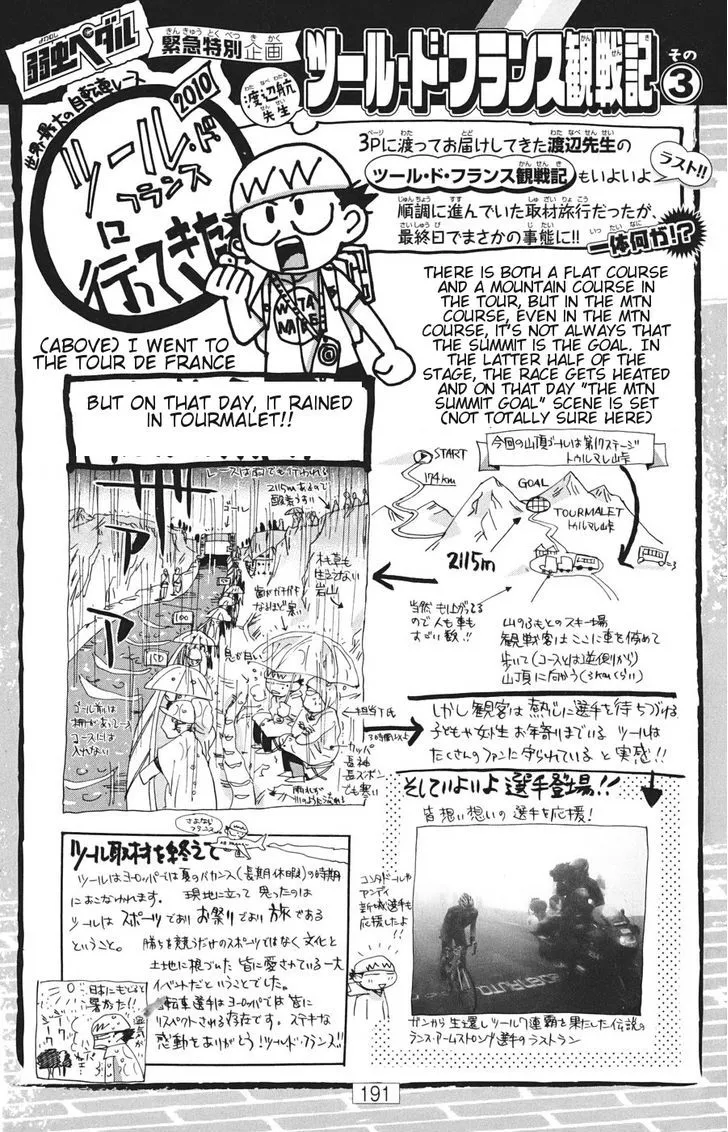 弱虫ペダル
緊急特別企画
渡辺航先生
ツール・ド・フランス観戦記
その③
世界最大の自転車レース
2010
ツール・ド
フランス
に
行ってきた
3Pに渡ってお届けしてきた渡辺先生の
ツール・ド・フランス観戦記もいよいよ
ラスト!!
順調に進んでいた取材旅行だったが、
最終日でまさかの事態に!!
一体何が!?
(ABOVE) I WENT TO
THE TOUR DE FRANCE
THERE IS BOTH A FLAT COURSE
AND A MOUNTAIN COURSE IN
THE TOUR, BUT IN THE MTN
COURSE, EVEN IN THE MTN
COURSE, IT'S NOT ALWAYS THAT
THE SUMMIT IS THE GOAL. IN
THE LATTER HALF OF THE
STAGE, THE RACE GETS HEATED
AND ON THAT DAY "THE MTN
SUMMIT GOAL" SCENE IS SET
(NOT TOTALLY SURE HERE)
BUT ON THAT DAY, IT RAINED
IN TOURMALET!!
今回の山頂ゴールは第17ステージ
トゥルマレ山峠
START
174km
GOAL
TOURMALET
トゥルマレ山峠
2115m
当然もり上がってる
ので人も車も
すごい数!!
山のふもとのスキー場
観戦客はここに車を停めて
歩いて(コースとは逆側から)
山頂に向かう(3kmくらい)
レースは雨でも行われる
2115mあるので
酸素うすい
ゴール
木も草も
生えてない
岩山
歯がガチガチ
なるほど寒い
息が白い
100
150
ゴール前は
柵があってコース
コースには
入れない
担当T氏
3時間以上
カッパ
長袖
長ズボン
でも寒い
しかし観客は熱心に選手を待ちつづける
子どもや女性お年寄りまでいる ツールは
たくさんのファンに守られている と実感!!
そしていよいよ選手登場!!
皆想い想いの選手を応援!
コンタドールや
アンディ
新城選手も
応援したよ
!!
ガンから生還しツール7連覇を果たした伝説の
ランス・アームストロング選手のラストラン
さよなら
フランス
ツール取材を終えて
ツールはヨーロッパでは夏のバカンス(長期休暇)の時期
におこなわれます。 現地に立って思ったのは
ツールは スポーツであり お祭りであり 旅である
ということ。 勝ちを競うだけのスポーツではなく文化と
土地に根づいた皆に愛されている一大
イベントだということでした。
自転車選手はヨーロッパでは皆に
リスペクトされる存在です。ステキな
感動をありがとう!ツール・ド・フランス!!
日本にもどると
暑かった!!
191